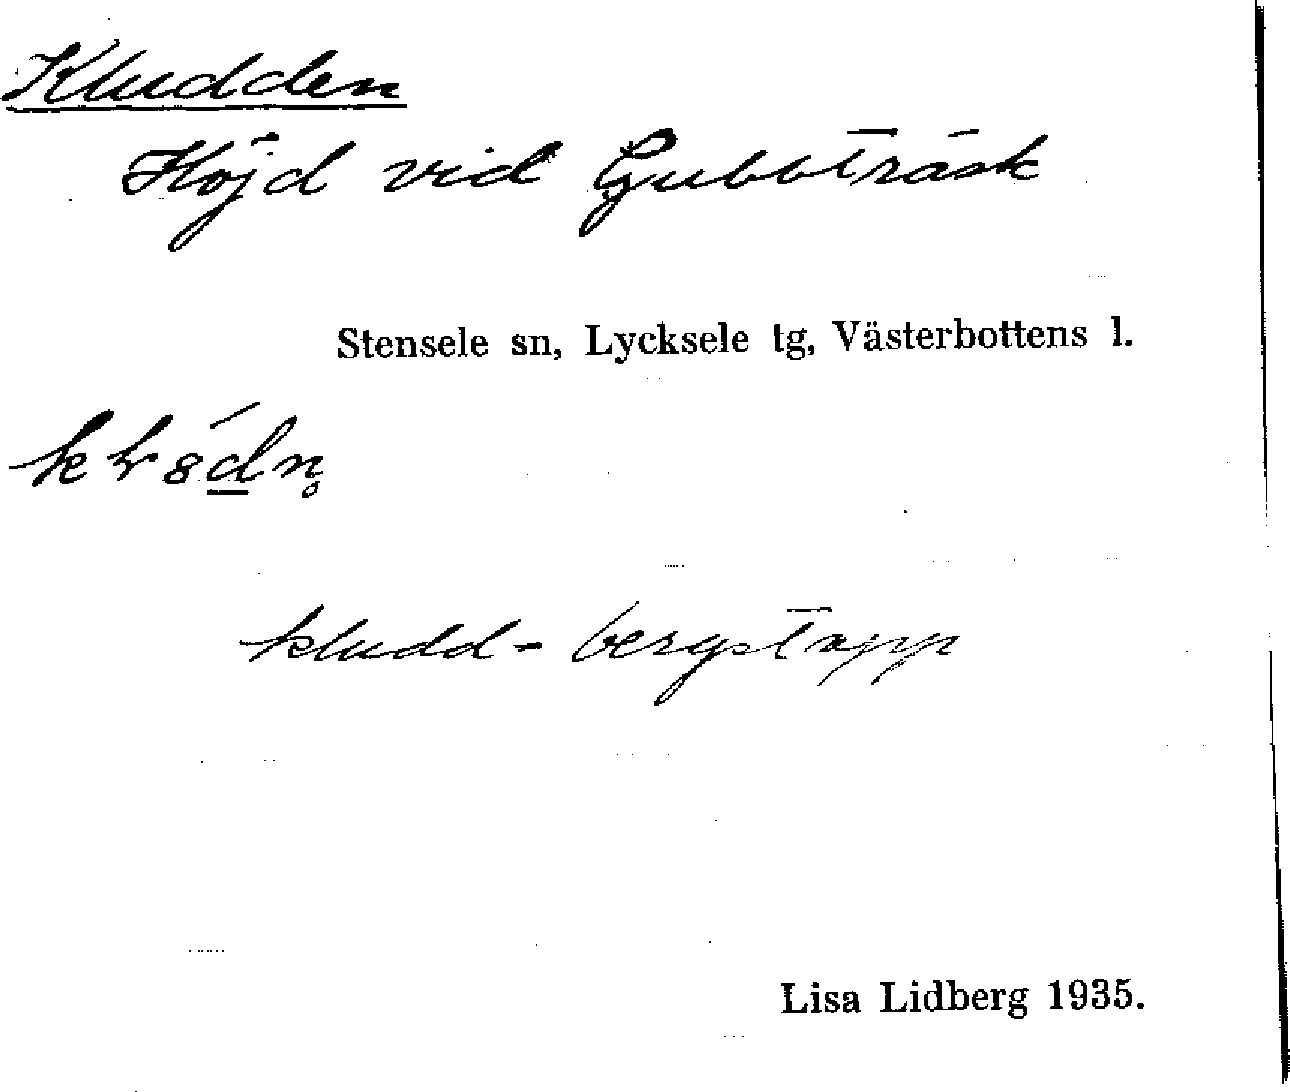 Kludden
Höjd vid Gubbträsk
Stensele sn, Lycksele tg, Västerbottens l.
kludd - bergstopp
Lisa Lidberg 1935.